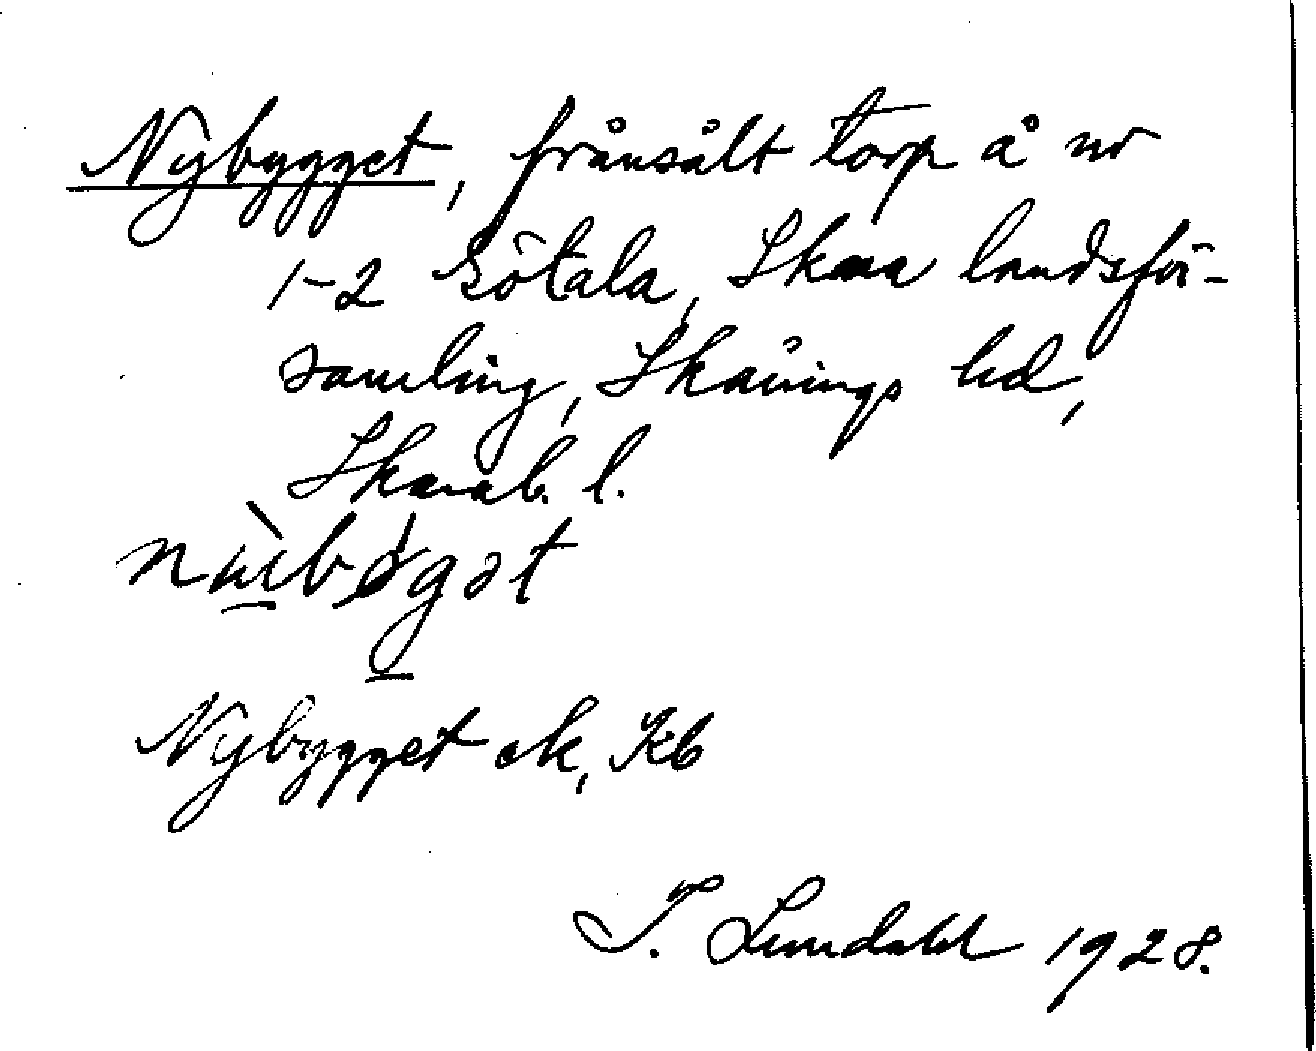 Nybygget, frånsålt torp å nr
1-2 Götala, Skara landsför-
samling, Skånings hd,
Skarab. l.
Nybygget ek, Kb
I. Lundahl 1928.